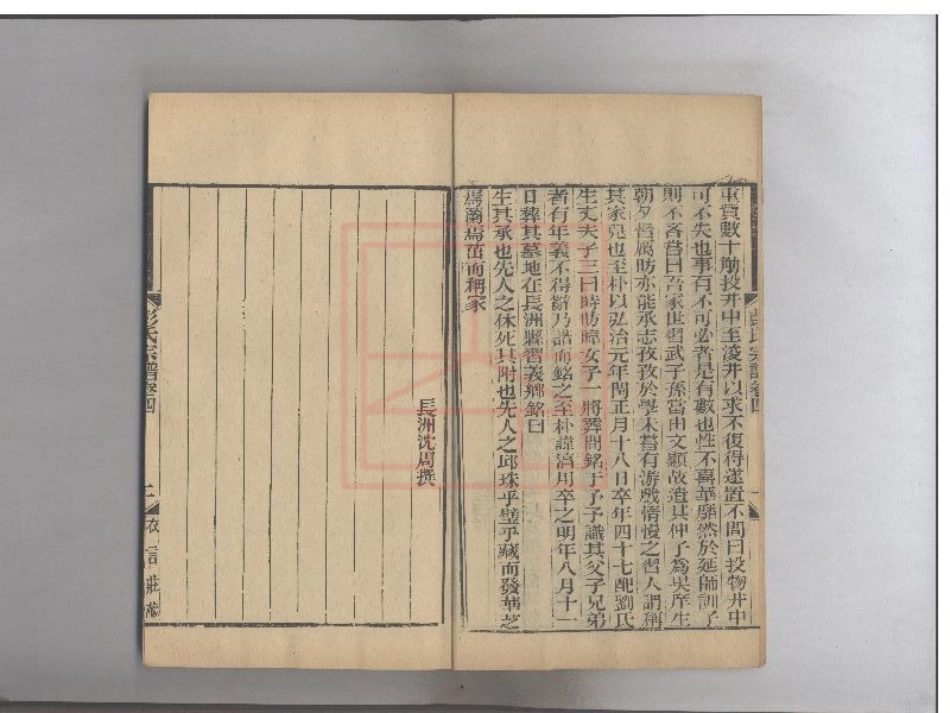 重貲數十觔投井中至淩井以求不復得遂置不問曰投物井中
可不失也事有不可必者是有數也性不喜華靡然於延師訓子
則不吝嘗曰吾家世習武子孫當由文顯故遣其仲子為吳庠生
朝夕督属昉亦能承志孜孜於學未嘗有游戲惰慢之習人謂稱
其家兒也至朴以弘治元年閏正月十八日卒年四十七配劉氏
生丈夫子三曰時昉暐女子一將葬問銘于予予識其父子兄弟
者有年義不得辭乃誥而銘之至朴諱淯用卒之明年八月十一
日葬其墓地在長洲縣習義鄉銘曰
生其承也先人之休死其附也先人之邱珠乎璧乎藏而發華芝
焉蘭焉茁而稱家
長洲沈周撰
彭氏宗譜卷四
一
彭氏宗譜卷四
衣言莊